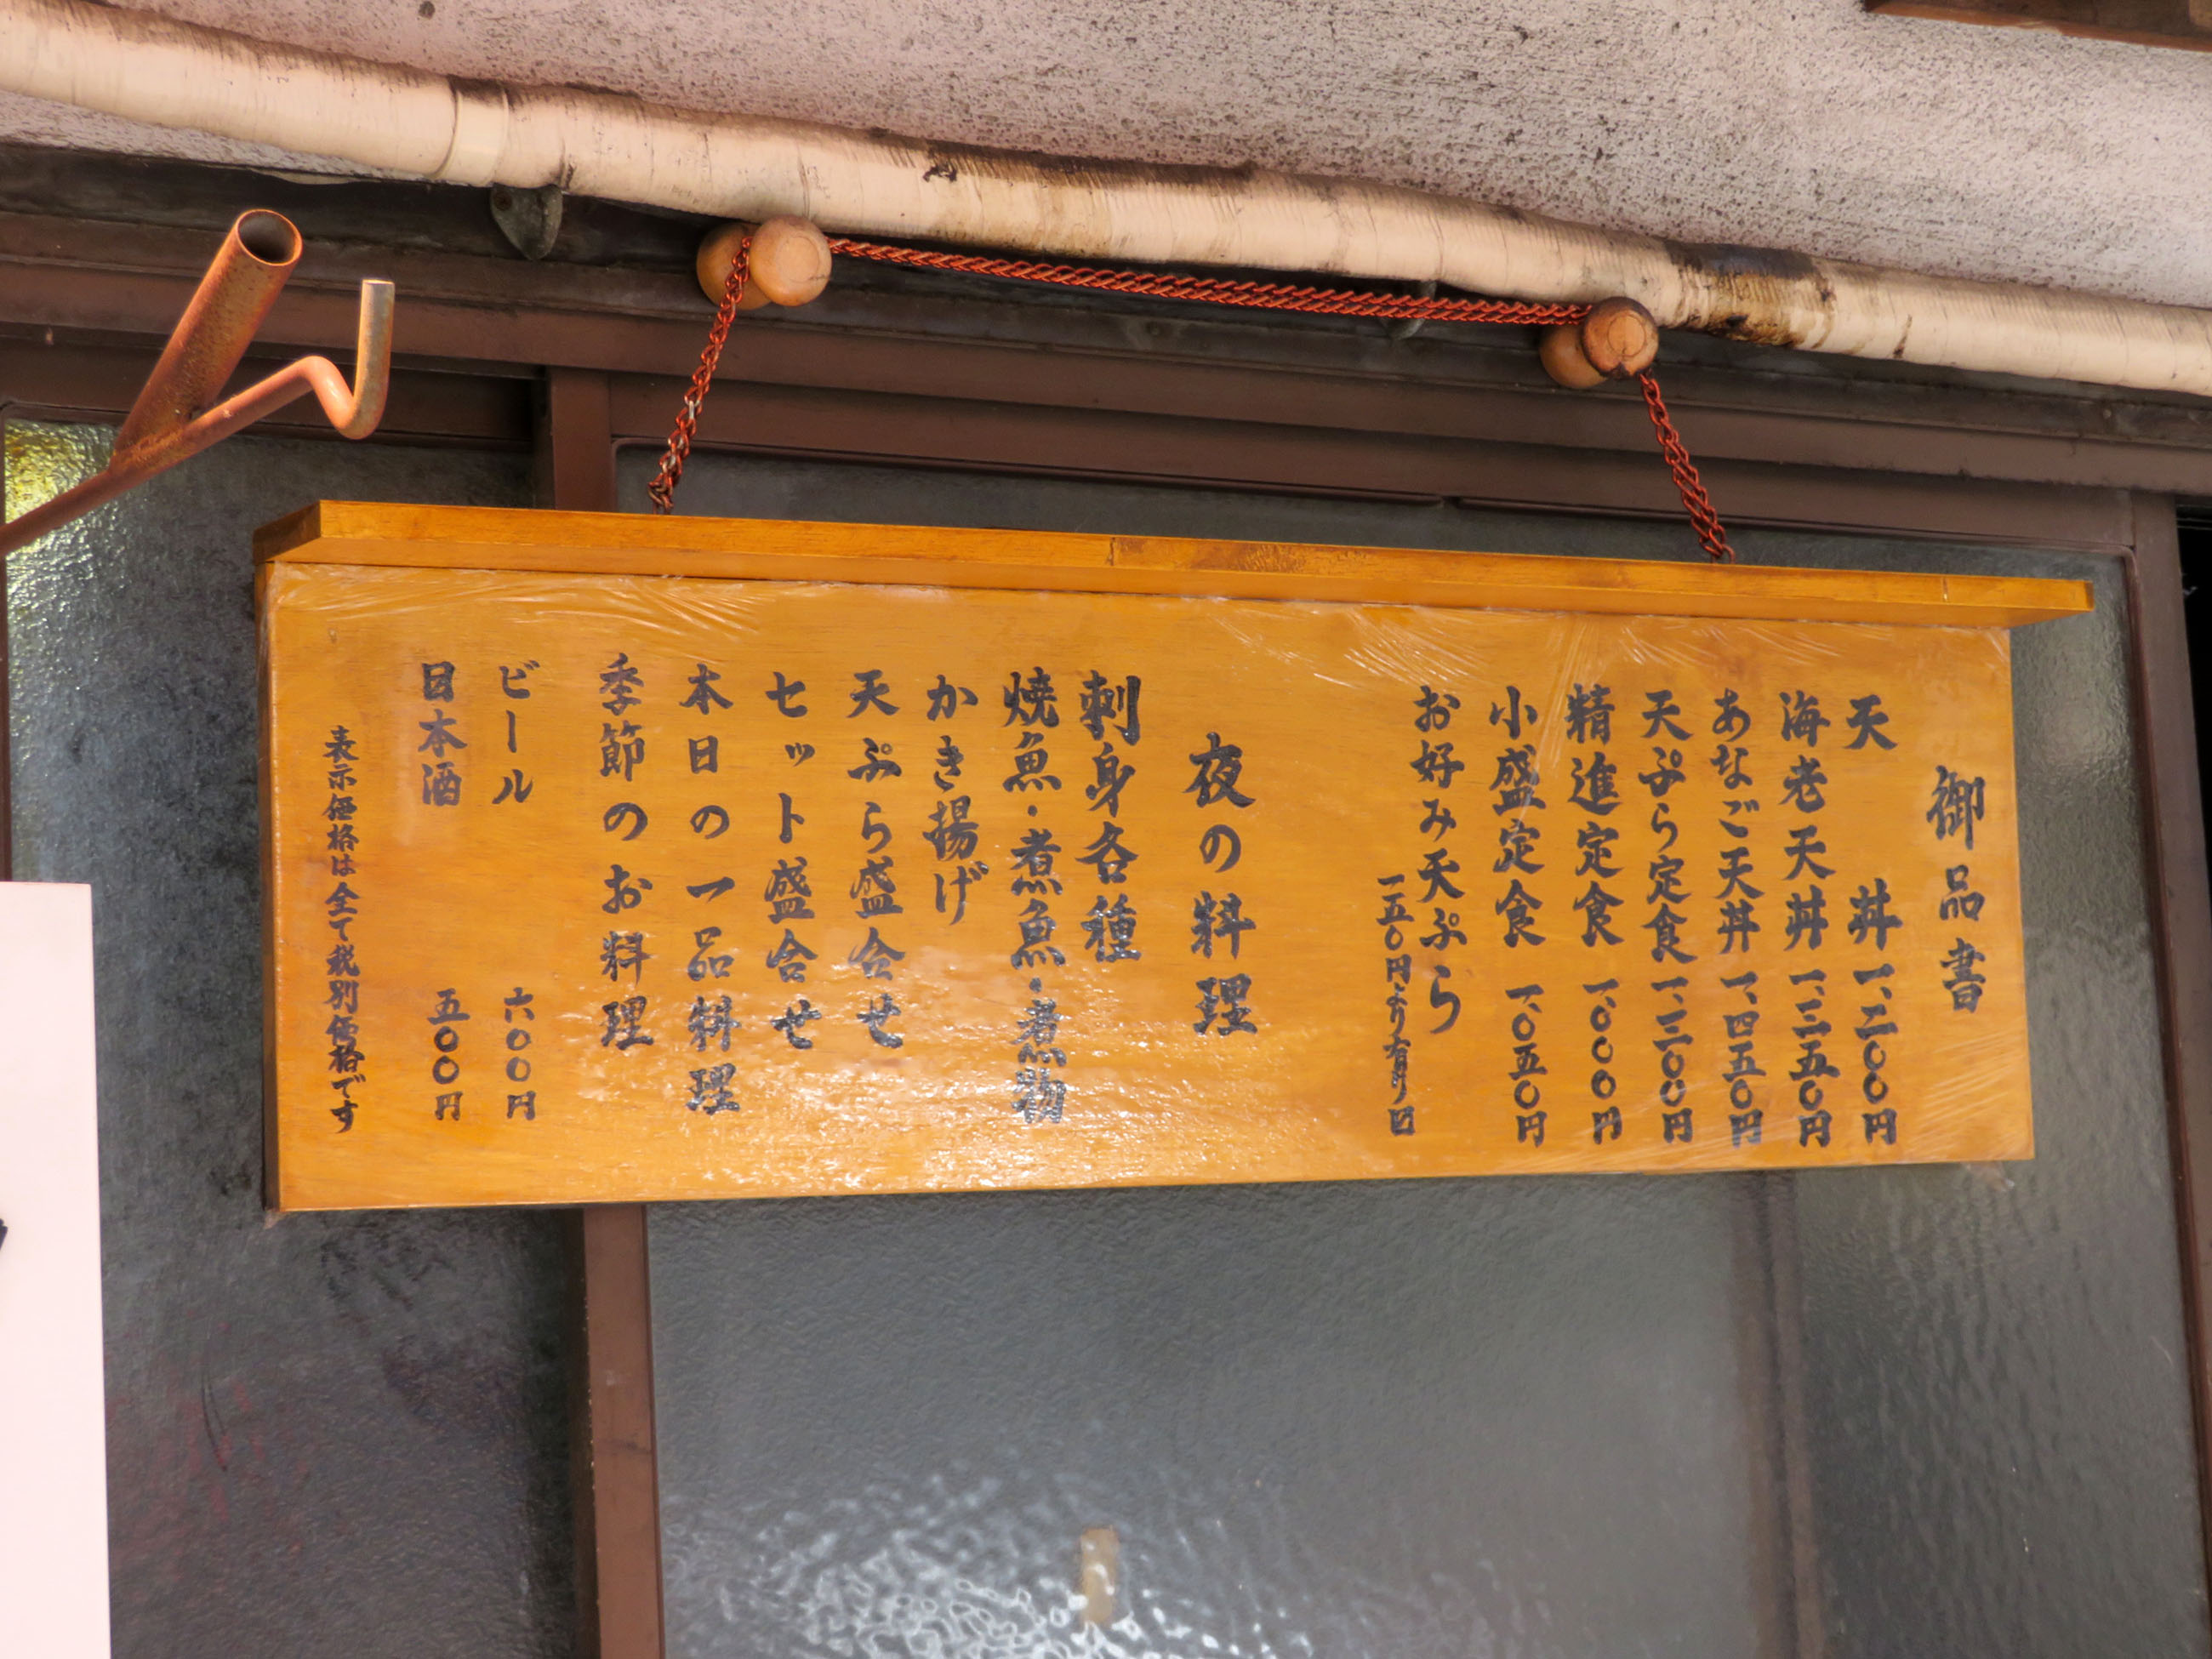 御品書
天丼 一、二〇〇円
海老天丼 一、三五〇円
あなご天丼 一、四五〇円
天ぷら定食 一、三〇〇円
精進定食 一、〇〇〇円
小盛定食 一、〇五〇円
お好み天ぷら
一五〇円より有り〼
夜の料理
刺身各種
焼魚・煮魚・煮物
かき揚げ
天ぷら盛合せ
セット盛合せ
本日の一品料理
季節のお料理
ビール 六〇〇円
日本酒 五〇〇円
表示価格は全て税別価格です